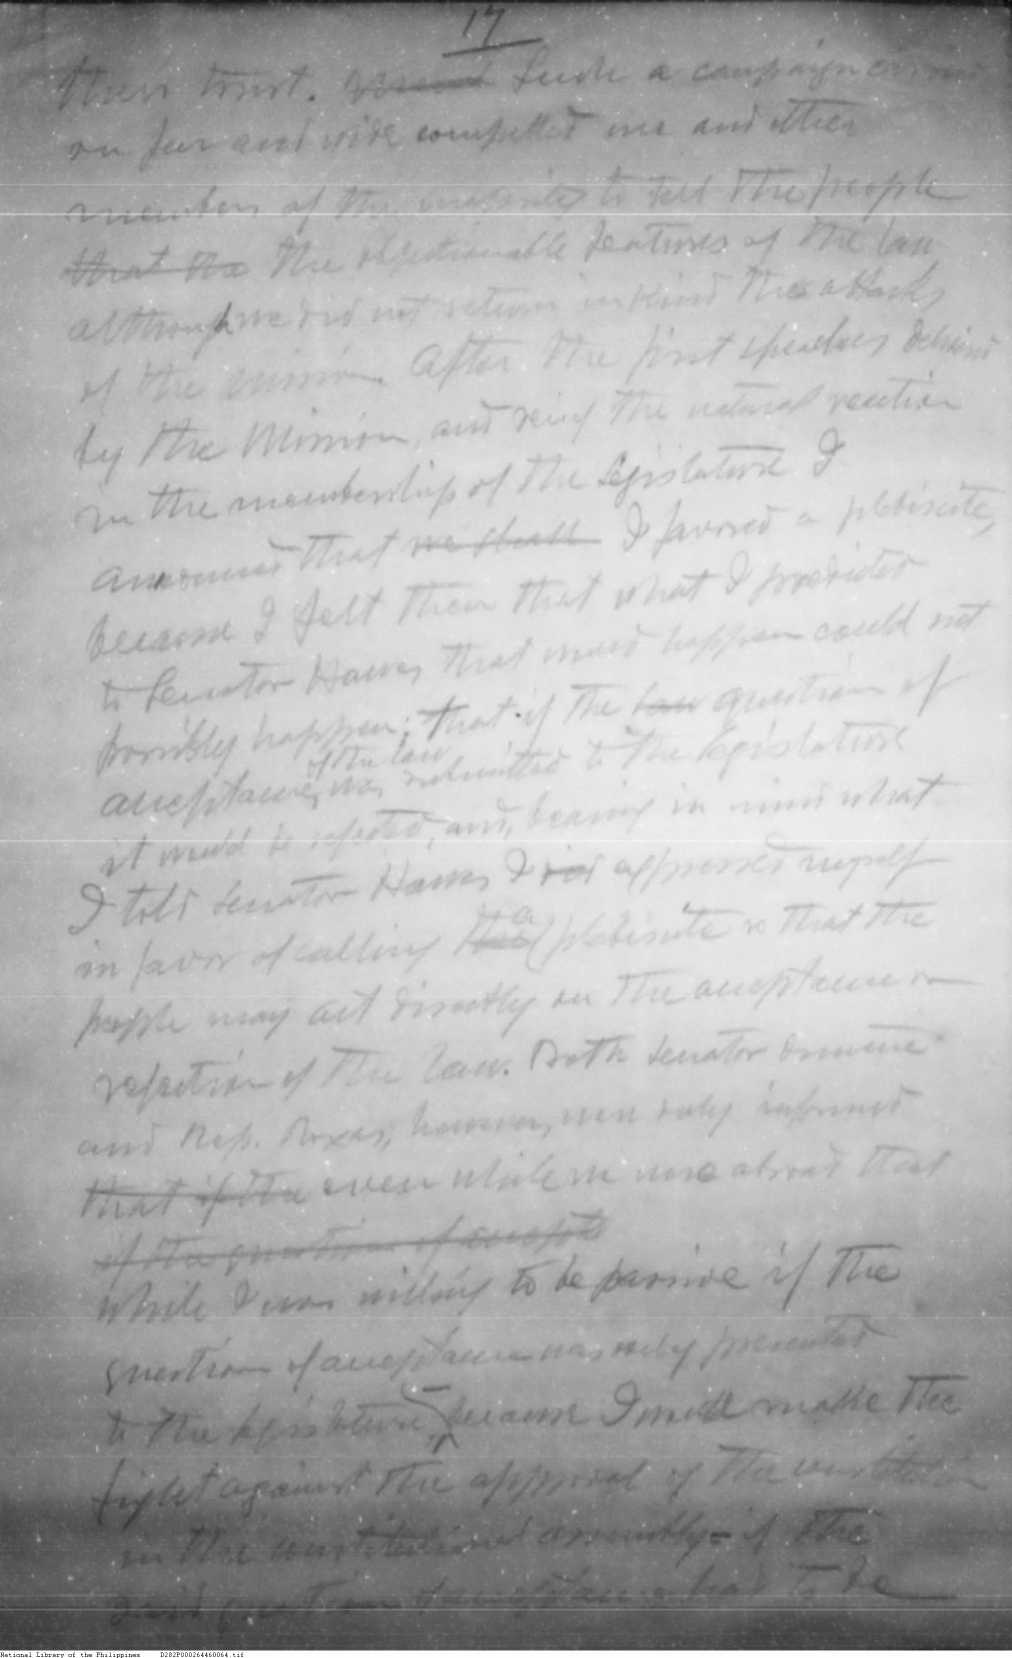 17
their trust. Such a campaign carried
on far and wide compelled me and other
members of the majority to tell the people
that the the objectionable features of the law
although we did not return in kind the attacks
of the mission. After the first speeches delivered
by the Mission, and seeing the natural reaction
in the membership of the Legislature I
announced that we shall I favored a plebiscite,
because I felt then that what I predicted
to Senator Hawes that would happen could not
possibly happen; that if the law question of
of the law
acceptance, was submitted to the Legislature
it would be rejected, and, bearing in mind what
I told Senator Hawes I did expressed myself
in favor of calling the a plebiscite so that the
people may act directly on the acceptance or
rejection of the law. Both Senator Osmena
and Rep. Roxas, however, were duly informed
that if the even while we were abroad that
if the question of accept
while I was willing to be passive if the
question of acceptance was only presented
to the Legislature, because I would make the
fight against the approval of the constitution
in the constitutional assembly – if the
said question of acceptance had to be
National Library of the Philippines D282P000264460064.tif